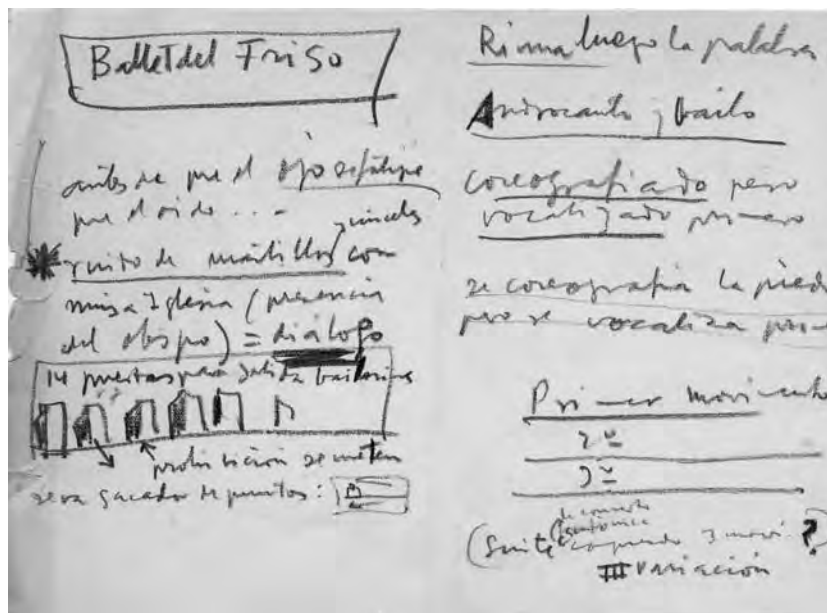 Ballet del Friso
antes de que el ojo se fatigue
que el oido ...
y cinceles
ruido de martillos con
misa Iglesia (presencia
del obispo) = diálogo
14 puertas para salida bailarines
prohibición se meten
sera sacador de puntos:
Rima luego la palabra
Androcanto y bailo
coreografiado pero
vocalizado primero
se coreografia la pied
pero se vocaliza
Primer movimiento
2º
3º
de concierto
sinfónica
(Suite 3 movi. ?)
III variación